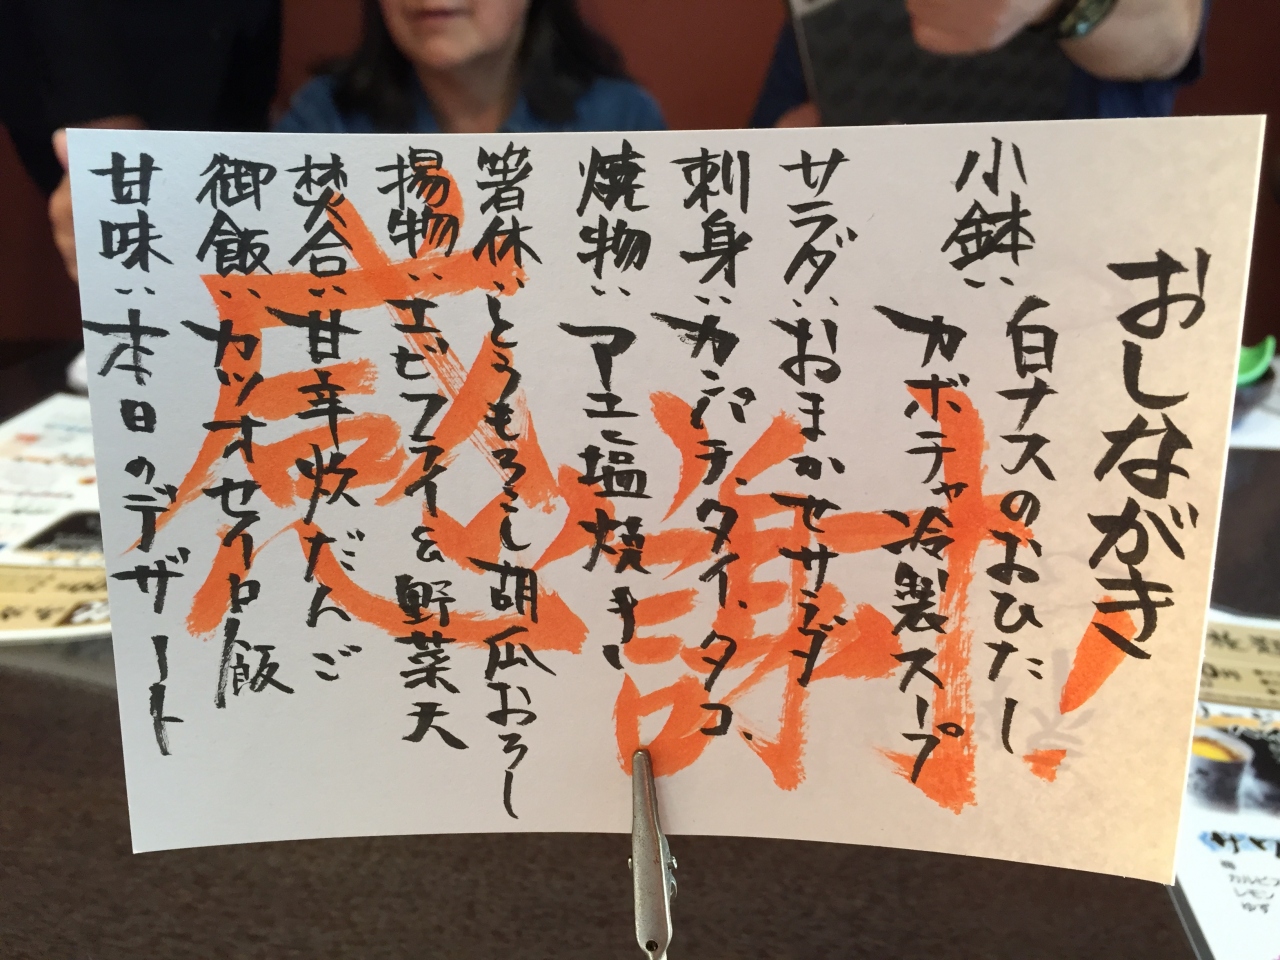 おしながき
小鉢‥白ナスのおひたし
カボチャ冷製スープ
サラダ‥おまかせサラダ
刺身‥カンパチ、タイ、タコ、
焼物‥アユ塩焼き
箸休‥とうもろこし胡瓜おろし
揚物‥エビフライ&野菜天
焚合‥甘辛炊だんご
御飯‥カツオセイロ飯
甘味‥本日のデザート
感謝!
カルピス
レモン
ゆず